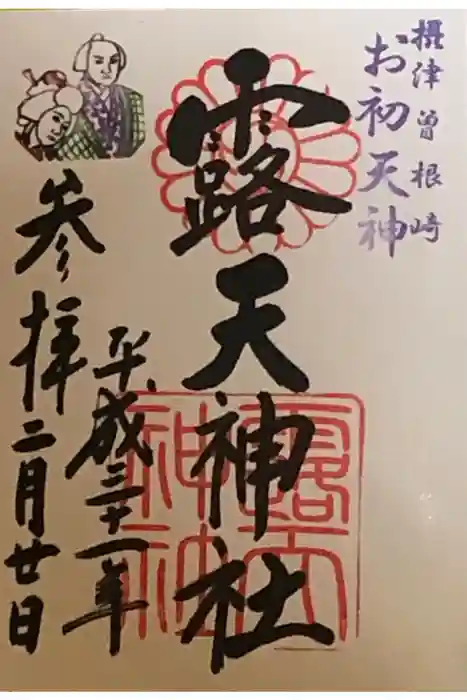 摂津曽根崎
お初天神
露天神社
平成三十一年
参拝二月廿日
露天
神社